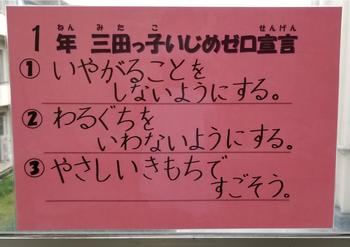 1年 三田っ子いじめゼロ宣言
ねん みたこ せんげん
① いやがることを
しないようにする。
② わるぐちを
いわないようにする。
③ やさしいきもちで
すごそう。